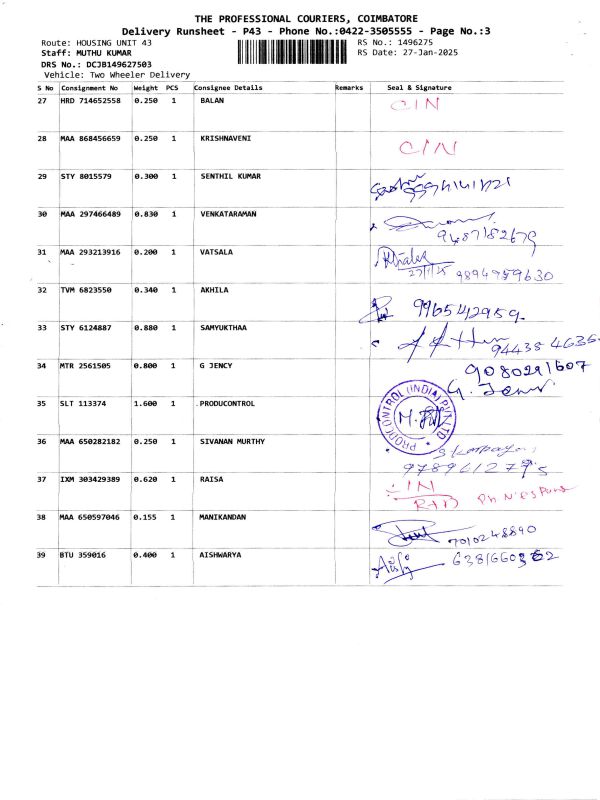 THE PROFESSIONAL COURIERS, COIMBATORE
Delivery Runsheet - P43 - Phone No.:0422-3505555 - Page No.:3
Route: HOUSING UNIT 43 RS No.: 1496275
Staff: MUTHU KUMAR RS Date: 27-Jan-2025
DRS No.: DCJB149627503
Vehicle: Two Wheeler Delivery
S No Consignment No Weight PCS Consignee Details Remarks Seal & Signature
27 HRD 714652558 0.250 1 BALAN CIN
28 MAA 868456659 0.250 1 KRISHNAVENI CIN
29 STY 8015579 0.300 1 SENTHIL KUMAR
30 MAA 297466489 0.830 1 VENKATARAMAN
9487182679
31 MAA 293213916 0.200 1 VATSALA
27/1/25 9894959630
32 TVM 6823550 0.340 1 AKHILA 9965412959.
33 STY 6124887 0.880 1 SAMYUKTHAA
94435 4636
34 MTR 2561505 0.800 1 G JENCY 9080291607
G. Jency
35 SLT 113374 1.600 1 PRODUCONTROL PRODUCONTROL (INDIA) PVT LTD
36 MAA 650282182 0.250 1 SIVANAN MURTHY
37 IXM 303429389 0.620 1 RAISA CIN
38 MAA 650597046 0.155 1 MANIKANDAN
7010248890
39 BTU 359016 0.400 1 AISHWARYA